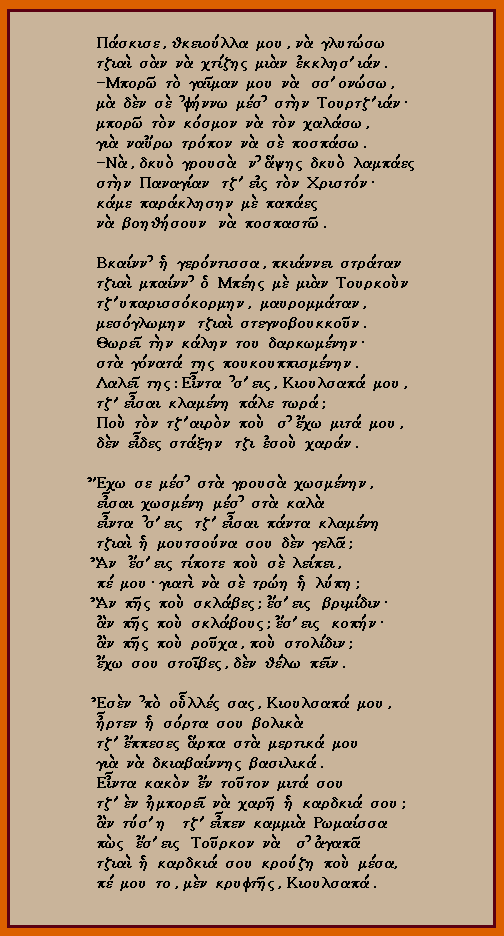 Πάσκισε, θκειούλλα μου, νὰ γλυτώσω
τζιαὶ σὰν νὰ χτίζης μιὰν ἐκκλησ’ιάν.
–Μπορῶ τὸ γαῖμαν μου νὰ σσ’ονώσω,
μὰ δὲν σὲ ’φήννω μέσ’ στὴν Τουρτζ’ιάν·
μπορῶ τὸν κόσμον νὰ τὸν χαλάσω,
γιὰ ναὕρω τρόπον νὰ σὲ ποσπάσω.
–Νὰ, δκυὸ γρουσὰ ν’ ἅψης δκυὸ λαμπάες
στὴν Παναγίαν τζ’ εἰς τὸν Χριστόν·
κάμε παράκλησην μὲ παπάες
νὰ βοηθήσουν νὰ ποσπαστῶ.

Βκαίνν’ ἡ γερόντισσα, πκιάννει στράταν
τζιαὶ μπαίνν’ ὁ Μπέης μὲ μιὰν Τουρκοὺν
τζ’υπαρισσόκορμην, μαυρομμάταν,
μεσόγλωμην τζιαὶ στεγνοβουκκοῦν.
Θωρεῖ τὴν κάλην του δαρκωμένην·
στὰ γόνατά της πουκουππισμένην.
Λαλεῖ της: Εἶντα ’σ’εις, Κιουλσαπά μου,
τζ’ εἶσαι κλαμένη πάλε τωρά;
Ποὺ τὸν τζ’αιρὸν ποὺ σ’ ἔχω μιτά μου,
δὲν εἶδες στάξην τζι ἐσοὺ χαράν.

Ἔχω σε μέσ’ στὰ γρουσὰ χωσμένην,
εἶσαι χωσμένη μέσ’ στὰ καλὰ
εἶντα ’σ’εις τζ’ εἶσαι πάντα κλαμένη
τζιαὶ ἡ μουτσούνα σου δὲν γελᾶ;
Ἂν ἔσ’εις τίποτε ποὺ σὲ λείπει,
πέ μου· γιατὶ νὰ σὲ τρώη ἡ λύπη;
Ἂν πῆς ποὺ σκλάβες; ἔσ’εις βριμίδιν·
ἂν πῆς ποὺ σκλάβους; ἔσ’εις κοπήν·
ἂν πῆς ποὺ ροῦχα, ποὺ στολίδιν;
ἔχω σου στοῖβες, δὲν θέλω πεῖν.

Ἐσὲν ’πὸ οὗλλές σας, Κιουλσαπά μου,
ἦρτεν ἡ σόρτα σου βολικὰ
τζ’ ἔππεσες ἅρπα στὰ μερτικά μου
γιὰ νὰ δκιαβαίννης βασιλικά.
Εἶντα κακὸν ἔν τοῦτον μιτά σου
τζ’ ἐν ἠμπορεῖ νὰ χαρῆ ἡ καρδκιά σου;
ἂν τύσ’η τζ’ εἶπεν καμμιὰ Ρωμαίσσα
πὼς ἔσ’εις Τοῦρκον νὰ σ’ ἀγαπᾶ
τζιαὶ ἡ καρδκιά σου κρούζη ποὺ μέσα,
πέ μου το, μὲν κρυφτῆς, Κιουλσαπά.